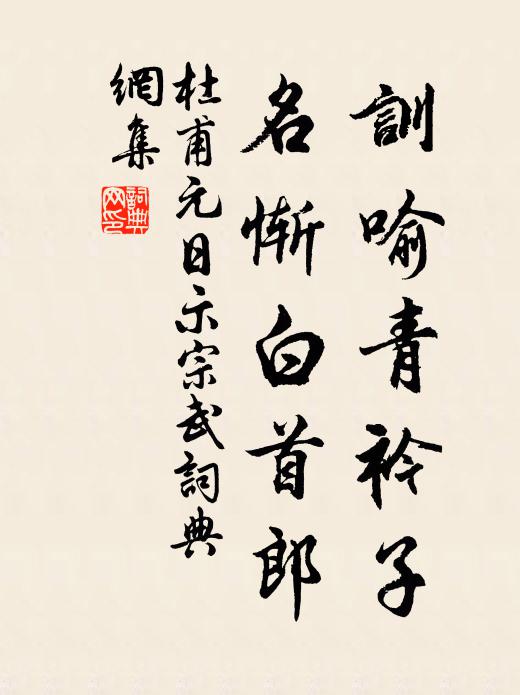 訓喻青衿子
名慚白首郎
杜甫元日示宗武詞典
網集
詞典
网印